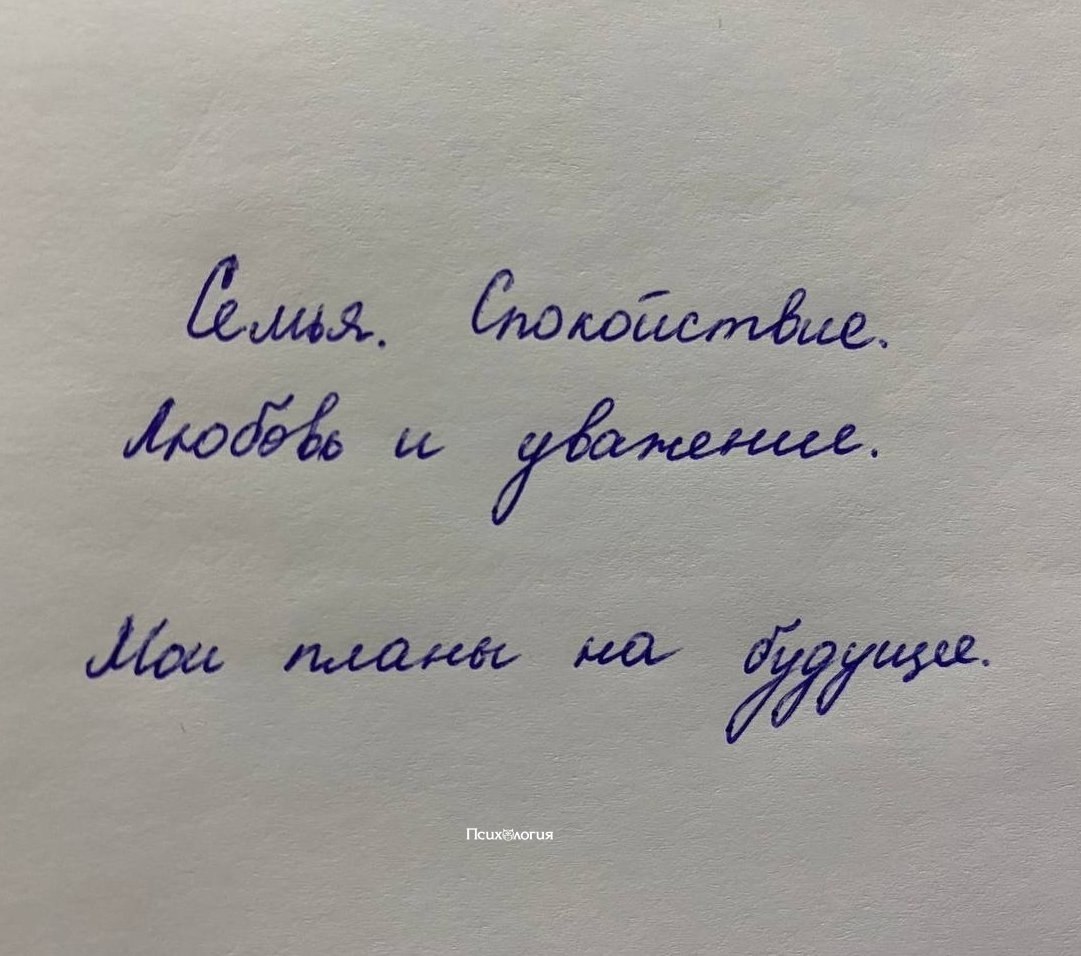 Семья. Спокойствие.
Любовь и уважение.
Мои планы на будущее.
Психология